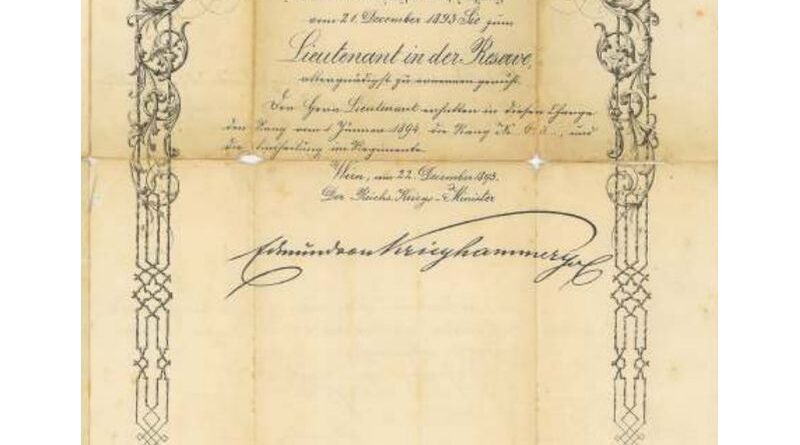 vom 21. December 1893 Sie zum
Lieutenant in der Reserve,
allergnädigst zu ernennen geruht.
Der Herr Lieutenant erhalten in dieser Charge
den Rang vom 1 Jänner 1894, die Rang №, und
die Eintheilung im Regimente.
Wien, am 22. December 1893.
Der Reichs-Kriegs-Minister
Edmund von Krieghammer